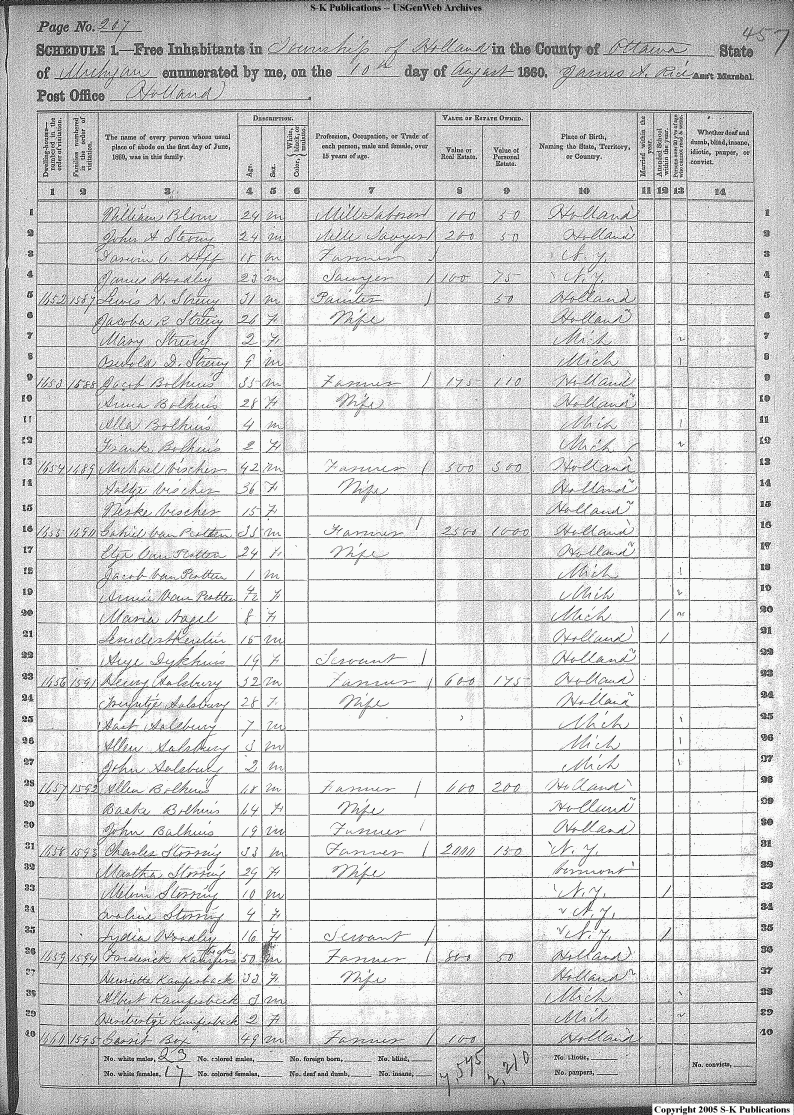 S-K Publications – USGenWeb Archives
Page No. 207
457
SCHEDULE 1.—Free Inhabitants in Township of Holland in the County of Ottawa State
of Michigan enumerated by me, on the 10th day of August 1860. James A. Rice Ass't Marshal.
Post Office Holland.
Dwelling-houses—numbered in the order of visitation.
Families numbered in the order of visitation.
The name of every person whose usual place of abode on the first day of June, 1860, was in this family
DESCRIPTION.
Age.
Sex.
Color, White, black, or mulatto.
Profession, Occupation, or Trade of each person, male and female, over 15 years of age.
VALUE OF ESTATE OWNED.
Value of Real Estate.
Value of Personal Estate.
Place of Birth, Naming the State, Territory, or Country.
Married within the year.
Attended School within the year.
Persons over 20 y'rs of age who cannot read & write.
Whether deaf and dumb, blind, insane, idiotic, pauper, or convict.
1 2 3 4 5 6 7 8 9 10 11 12 13 14
1 William Blom 24 m Mill Laborer 100 50 Holland 1
2 John A Streng 24 m Mill Sawyer 200 50 Holland 2
3 C. Hoff 18 m Farmer N.Y. 3
4 James Hoadley 23 m Sawyer 100 75 N.Y. 4
5 1452 1587 Lewis N. Streng 31 m Painter 50 Holland 5
6 Jacoba Streng 26 F Wife Holland 6
7 Mary Streng 2 F Mich 7
8 Oswald D. Streng 9 m Mich 8
9 1453 1588 Jacob Bolhuis 35 m Farmer 175 110 Holland 9
10 Anna Bolhuis 28 F Wife Holland 10
11 Alla Bolhuis 4 m Mich 11
12 Frank Bolhuis 2 F Mich 12
13 1454 1489 Michael Visscher 42 m Farmer 500 300 Holland 13
14 Visscher 36 F Wife Holland 14
15 Visscher 15 F Holland 15
16 1455 1490 Van Putten 35 m Farmer 2500 1000 Holland 16
17 Van Putten 24 F Wife Holland 17
18 Jacob Van Putten 1 m Mich 18
19 Annie Van Putten F Mich 19
20 Maria Nagel 8 F Mich 1 20
21 15 m Holland 1 21
22 Dykhuis 19 F Servant Holland 22
23 1456 1591 Henry Salsbury 32 m Farmer 600 175 Holland 23
24 Salsbury 28 F Wife Holland 24
25 Salsbury 7 m Mich 25
26 Allen Salsbury 3 m Mich 26
27 John Salsbury 2 m Mich 27
28 1457 1592 Allen Bolhuis 68 m Farmer 600 200 Holland 28
29 Baske Bolhuis 64 F Wife Holland 29
30 John Bolhuis 19 m Farmer Holland 30
31 1458 1593 Charles Storring 33 m Farmer 2000 150 N.Y. 31
32 Martha Storring 29 F Wife Vermont 32
33 Melvin Storring 10 m N.Y. 1 33
34 Storring 4 F N.Y. 34
35 Lydia Hoadley 16 F Servant N.Y. 1 35
36 1459 1594 Frederick Kampferbeck 50 m Farmer 800 50 Holland 36
37 Henrietta Kamferback 33 F Wife Holland 37
38 Albert Kamferback 3 m Mich 38
39 Kamferback 2 F Mich 39
40 1460 1595 Garrit Box 49 m Farmer 100 Holland 40
No. white males, 23 No. colored males, No. foreign born, No. blind, 7,595 2,210 No. idiotic, No. convicts,
No. white females, 17 No. colored females, No. deaf and dumb, No. insane, No. paupers,
Copyright 2005 S-K Publications